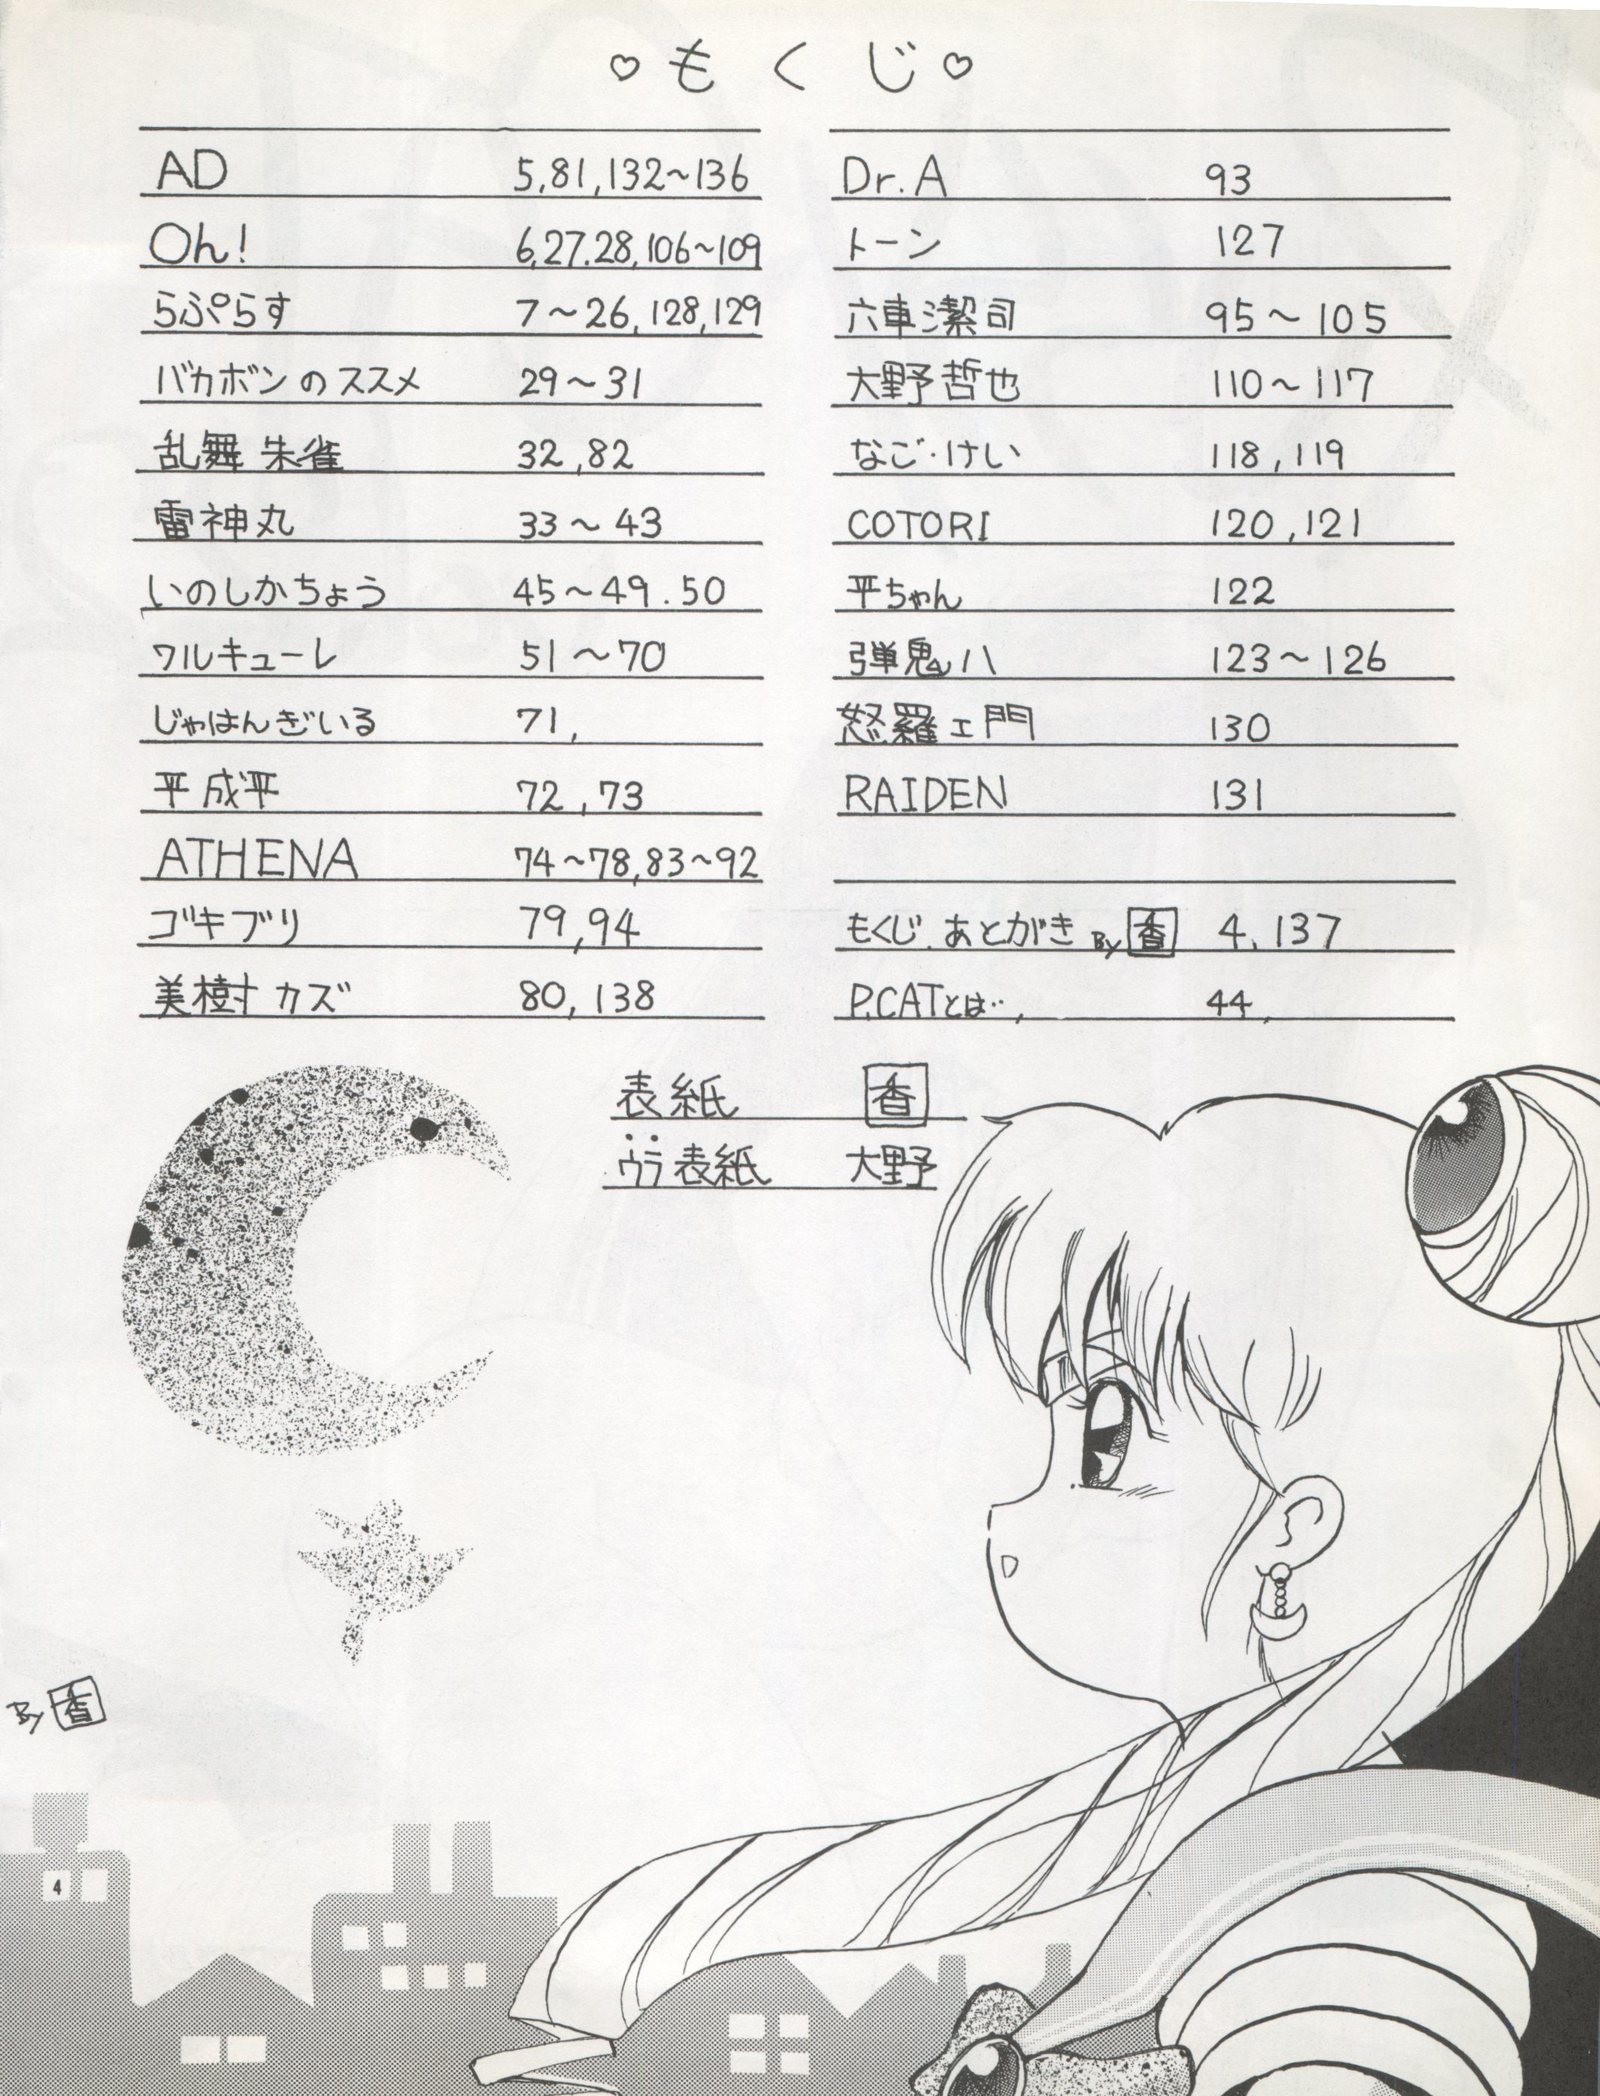 ♡もくじ♡
AD 5,81,132～136
Oh! 6,27.28,106～109
らぷらす 7～26,128,129
バカボンのススメ 29～31
乱舞 朱雀 32,82
雷神丸 33～43
いのしかちょう 45～49.50
ワルキューレ 51～70
じゃはんぎいる 71,
平成平 72,73
ATHENA 74～78,83～92
ゴキブリ 79,94
美樹カズ 80,138
Dr.A 93
トーン 127
六車潔司 95～105
大野哲也 110～117
なご・けい 118,119
COTORI 120,121
平ちゃん 122
弾鬼八 123～126
怒羅ェ門 130
RAIDEN 131
もくじ.あとがき By 香 4,137
P.CATとは…, 44,
表紙 香
ウラ表紙 大野
By 香
4